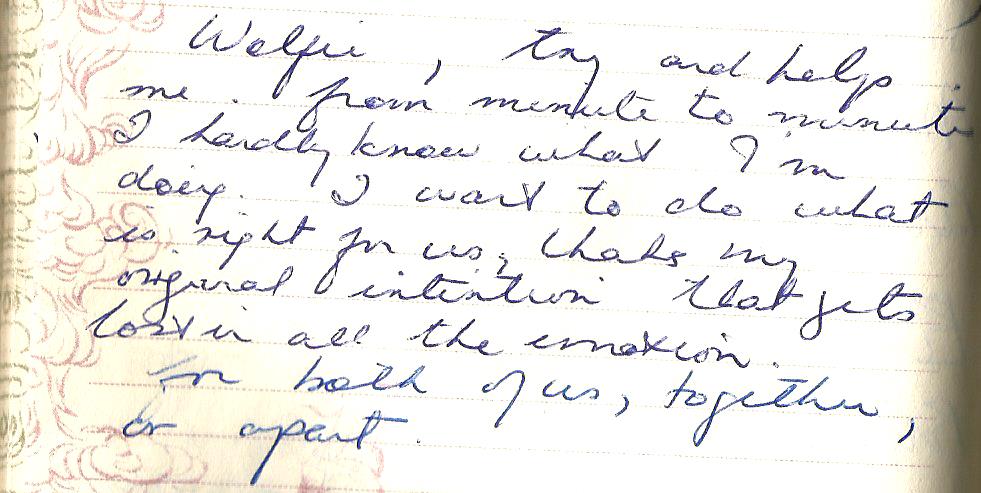 Wolfie, try and help
me. from minute to minute
I hardly know what I'm
doing. I want to do what
is right for us, thats my
original intention that gets
lost in all the emotion.
For both of us, together,
or apart.